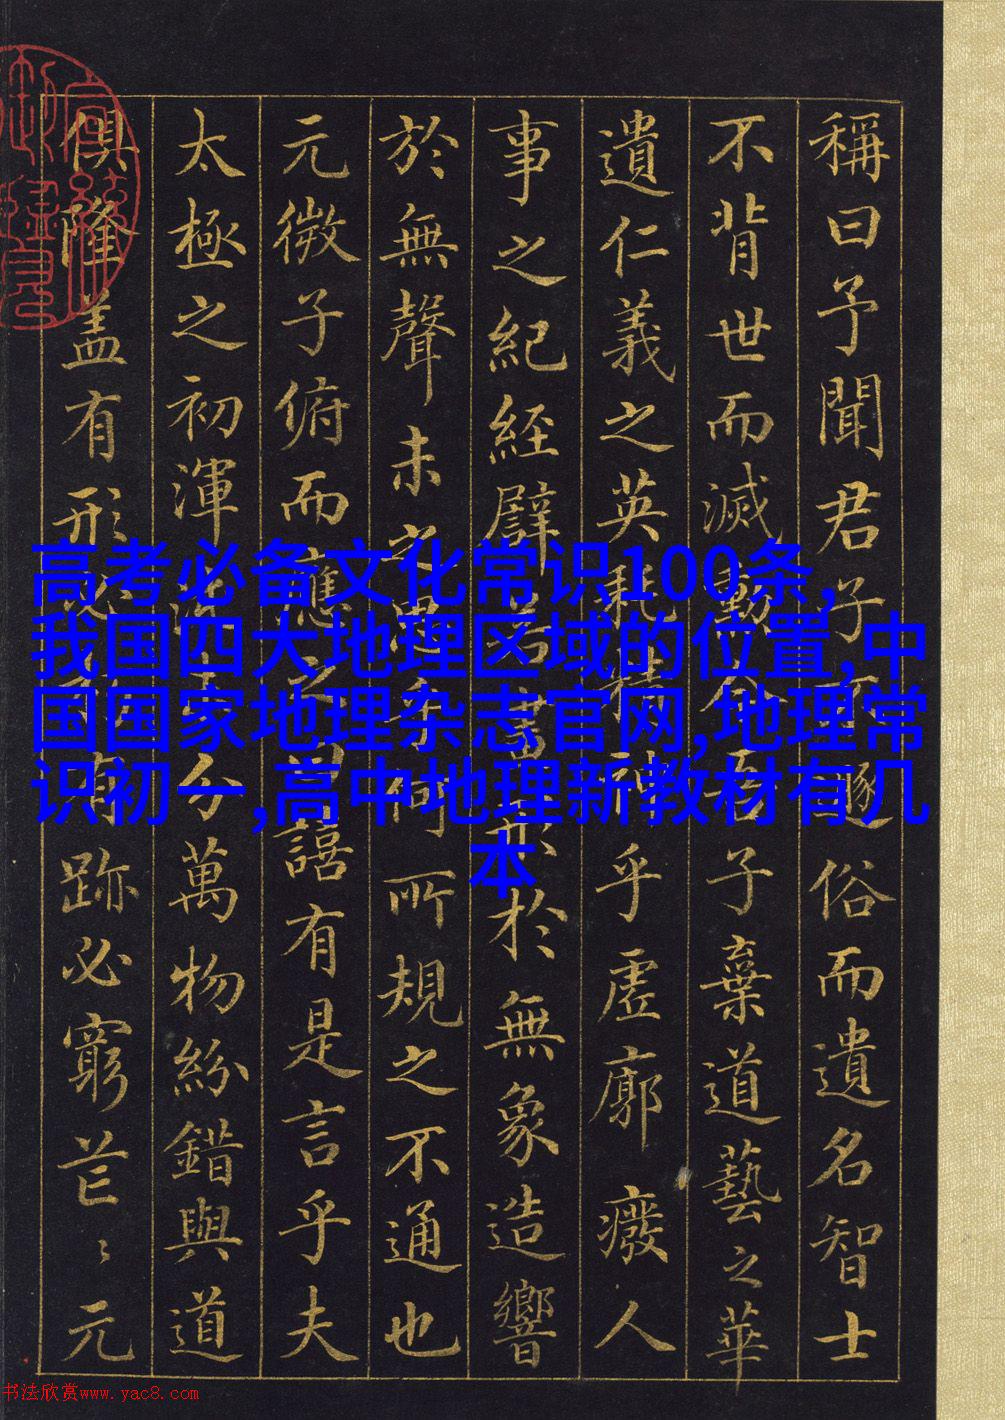 稱曰予聞君子不遯俗而遺名智士
不背世而滅勳今吾子棄道藝之華
遺仁義之英耗精神乎虛廓廢人
事之紀經譬若畫形於無象造響
於無聲未之思乎何所規之不通也
元微子俯而應之曰譆有是言乎夫
太極之初渾沌未分萬物紛錯與道
俱隆盖有形必朽有跡必窮芒〻元
高考必备文化常识100条,
我国四大地理区域的位置,中
国国家地理杂志官网,地理常
识初一,高中地理新教材有几
本
书法欣赏www.yac8.com